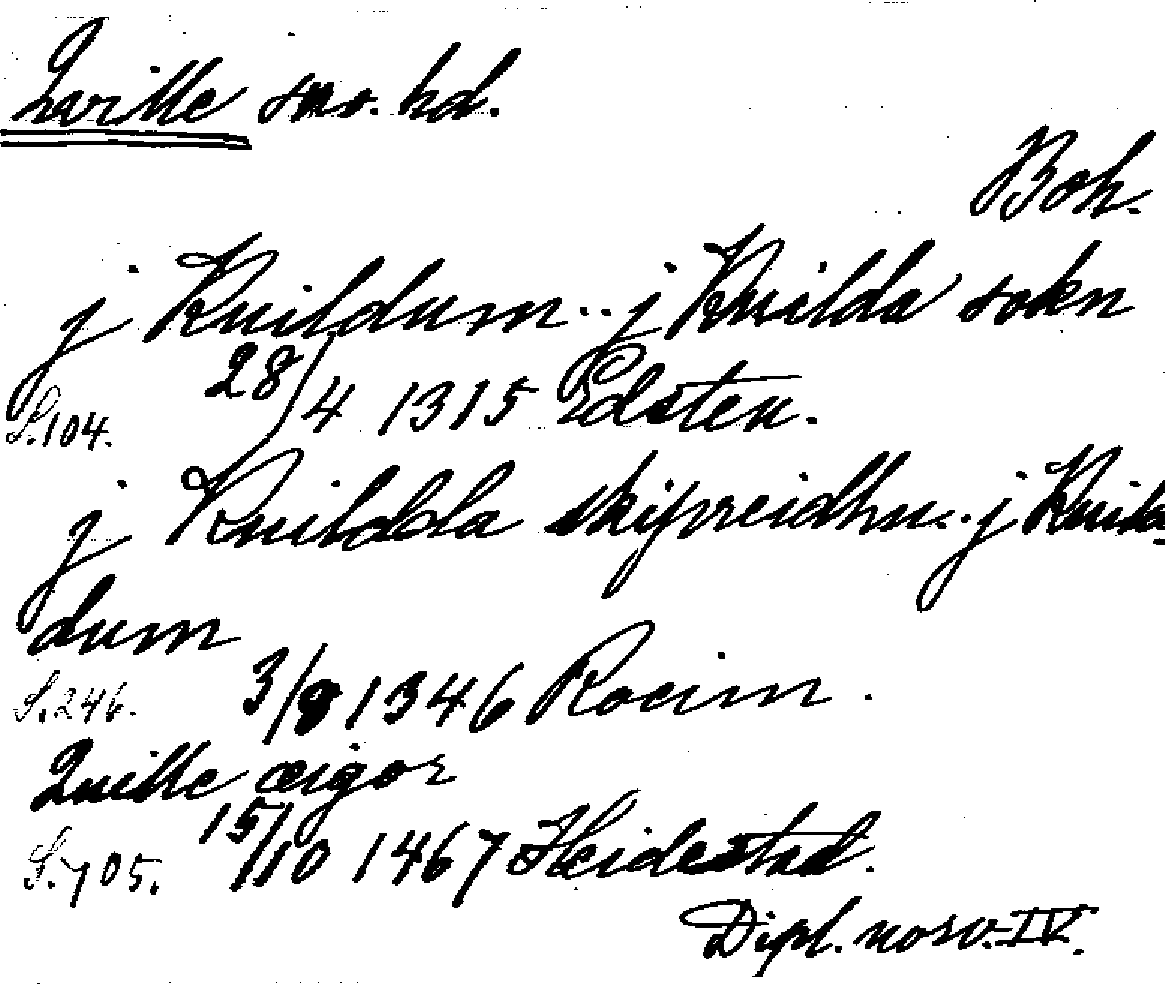 Qville sns. hd.
Boh.
j Kuildum.. j Kuilda sokn
S.104. 28/4 1315 Edsten.
j Kuildda skipreidhu.. j Kuild-
dum
S.246. 3/8 1346 Roeim.
Quille æigor
S.705. 15/10 1467 Heidestad.
Dipl. norv. IV.